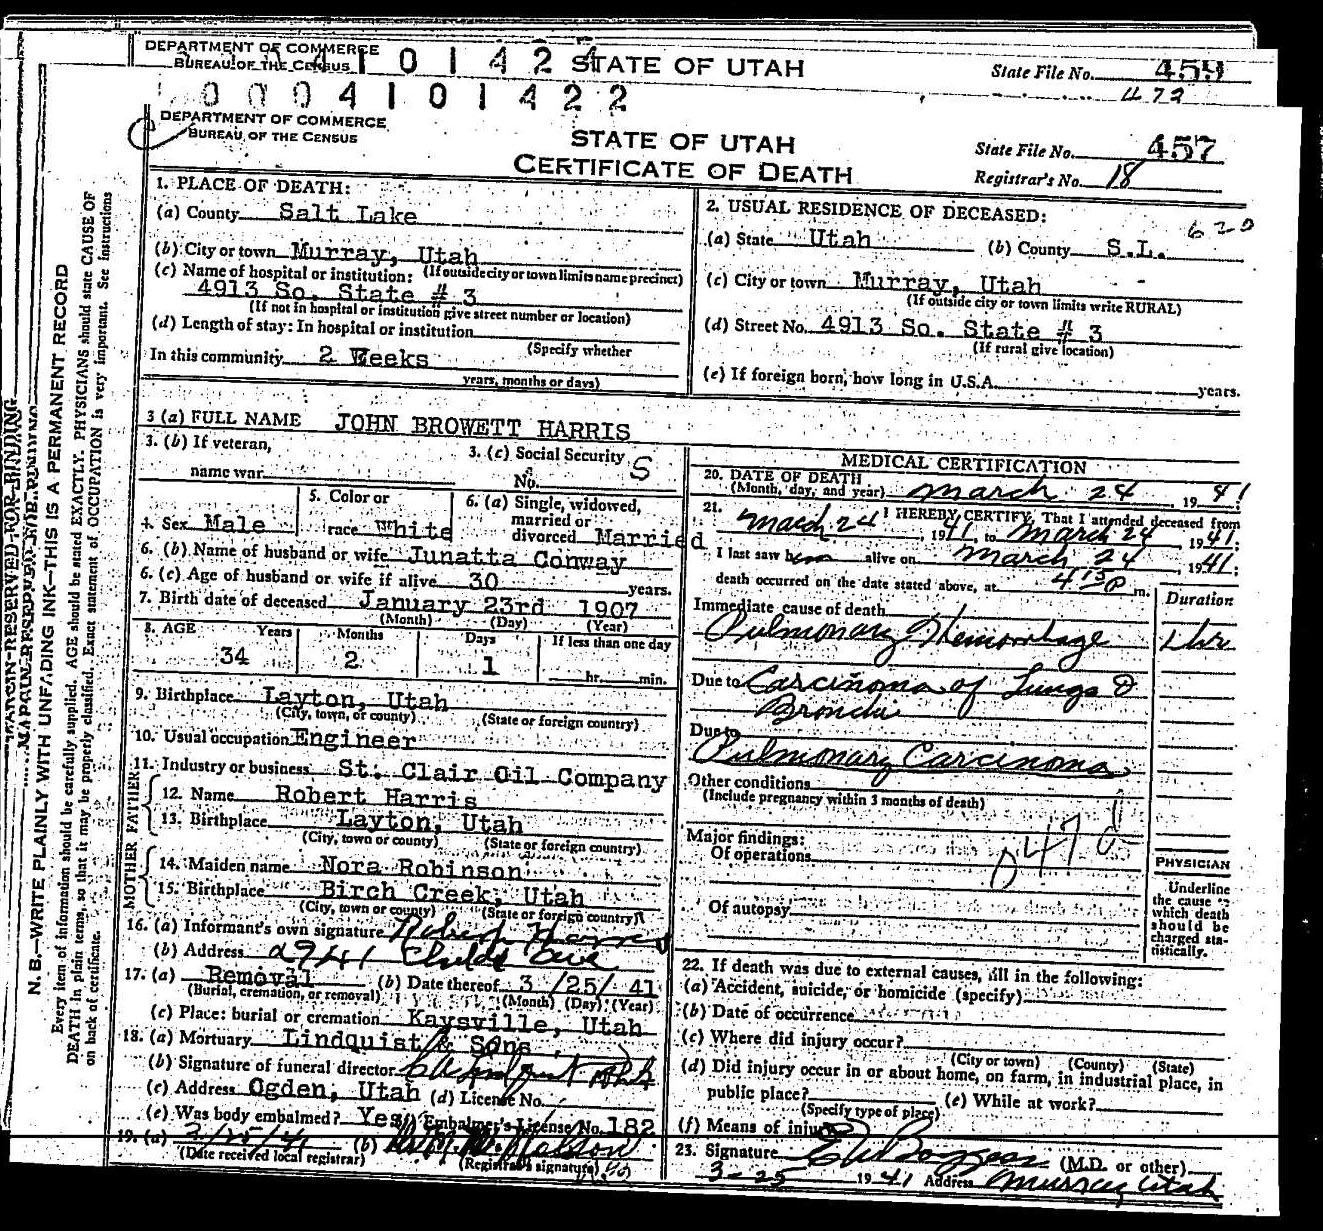 DEPARTMENT OF COMMERCE
BUREAU OF THE CENSUS
4 1 0 1 4 2 STATE OF UTAH
State File No. 459
472
0 0 0 4 1 0 1 4 2 2
DEPARTMENT OF COMMERCE
BUREAU OF THE CENSUS
STATE OF UTAH
CERTIFICATE OF DEATH
State File No. 457
Registrar's No. 18
MARGIN RESERVED FOR BINDING
N. B.—WRITE PLAINLY WITH UNFADING INK—THIS IS A PERMANENT RECORD
Every item of information should be carefully supplied. AGE should be stated EXACTLY. PHYSICIANS should state CAUSE OF
DEATH in plain terms, so that it may be properly classified. Exact statement of OCCUPATION is very important. See instructions
on back of certificate.
1. PLACE OF DEATH:
(a) County Salt Lake
(b) City or town Murray, Utah
(If outside city or town limits name precinct)
(c) Name of hospital or institution:
4913 So. State # 3
(If not in hospital or institution give street number or location)
(d) Length of stay: In hospital or institution
(Specify whether
In this community 2 Weeks
years, months or days)
2. USUAL RESIDENCE OF DECEASED:
620
(a) State Utah (b) County S.L.
(c) City or town Murray, Utah
(If outside city or town limits write RURAL)
(d) Street No. 4913 So. State # 3
(If rural give location)
(e) If foreign born, how long in U.S.A. years.
3 (a) FULL NAME JOHN BROWETT HARRIS
3. (b) If veteran,
name war
3. (c) Social Security
No. S
4. Sex Male
5. Color or
race White
6. (a) Single, widowed,
married or
divorced Married
6. (b) Name of husband or wife Junatta Conway
6. (c) Age of husband or wife if alive 30 years.
7. Birth date of deceased January 23rd 1907
(Month) (Day) (Year)
8. AGE Years Months Days If less than one day
34 2 1 hr. min.
9. Birthplace Layton, Utah
(City, town, or county) (State or foreign country)
10. Usual occupation Engineer
11. Industry or business St. Clair Oil Company
FATHER
12. Name Robert Harris
13. Birthplace Layton, Utah
(City, town or county) (State or foreign country)
MOTHER
14. Maiden name Nora Robinson
15. Birthplace Birch Creek, Utah
(City, town or county) (State or foreign country)
16. (a) Informant's own signature Robert Harris
(b) Address 2941 Childs Ave
17. (a) Removal (b) Date thereof 3/25/41
(Burial, cremation, or removal) (Month) (Day) (Year)
(c) Place: burial or cremation Kaysville, Utah
18. (a) Mortuary Lindquist & Sons
(b) Signature of funeral director
(c) Address Ogden, Utah (d) License No.
(e) Was body embalmed? Yes (f) Embalmer's License No. 182
19. (a) 3/25/41 (b)
(Date received local registrar) (Registrar's signature)
MEDICAL CERTIFICATION
20. DATE OF DEATH
(Month, day, and year) March 24, 1941
21. I HEREBY CERTIFY, That I attended deceased from
March 24, 1941, to March 24 1941;
I last saw him alive on March 24, 1941;
death occurred on the date stated above, at 4:15 P m.
Duration
Immediate cause of death
Pulmonary Hemorrhage 1 hr
Due to Carcinoma of Lungs &
Bronchi
Due to
Pulmonary Carcinoma
Other conditions
(Include pregnancy within 3 months of death)
Major findings:
Of operations
047
Of autopsy
PHYSICIAN
Underline
the cause
which death
should be
charged sta-
tistically.
22. If death was due to external causes, fill in the following:
(a) Accident, suicide, or homicide (specify)
(b) Date of occurrence
(c) Where did injury occur?
(City or town) (County) (State)
(d) Did injury occur in or about home, on farm, in industrial place, in
public place? (e) While at work?
(Specify type of place)
(f) Means of injury
23. Signature (M.D. or other)
3-25 1941 Address Murray Utah